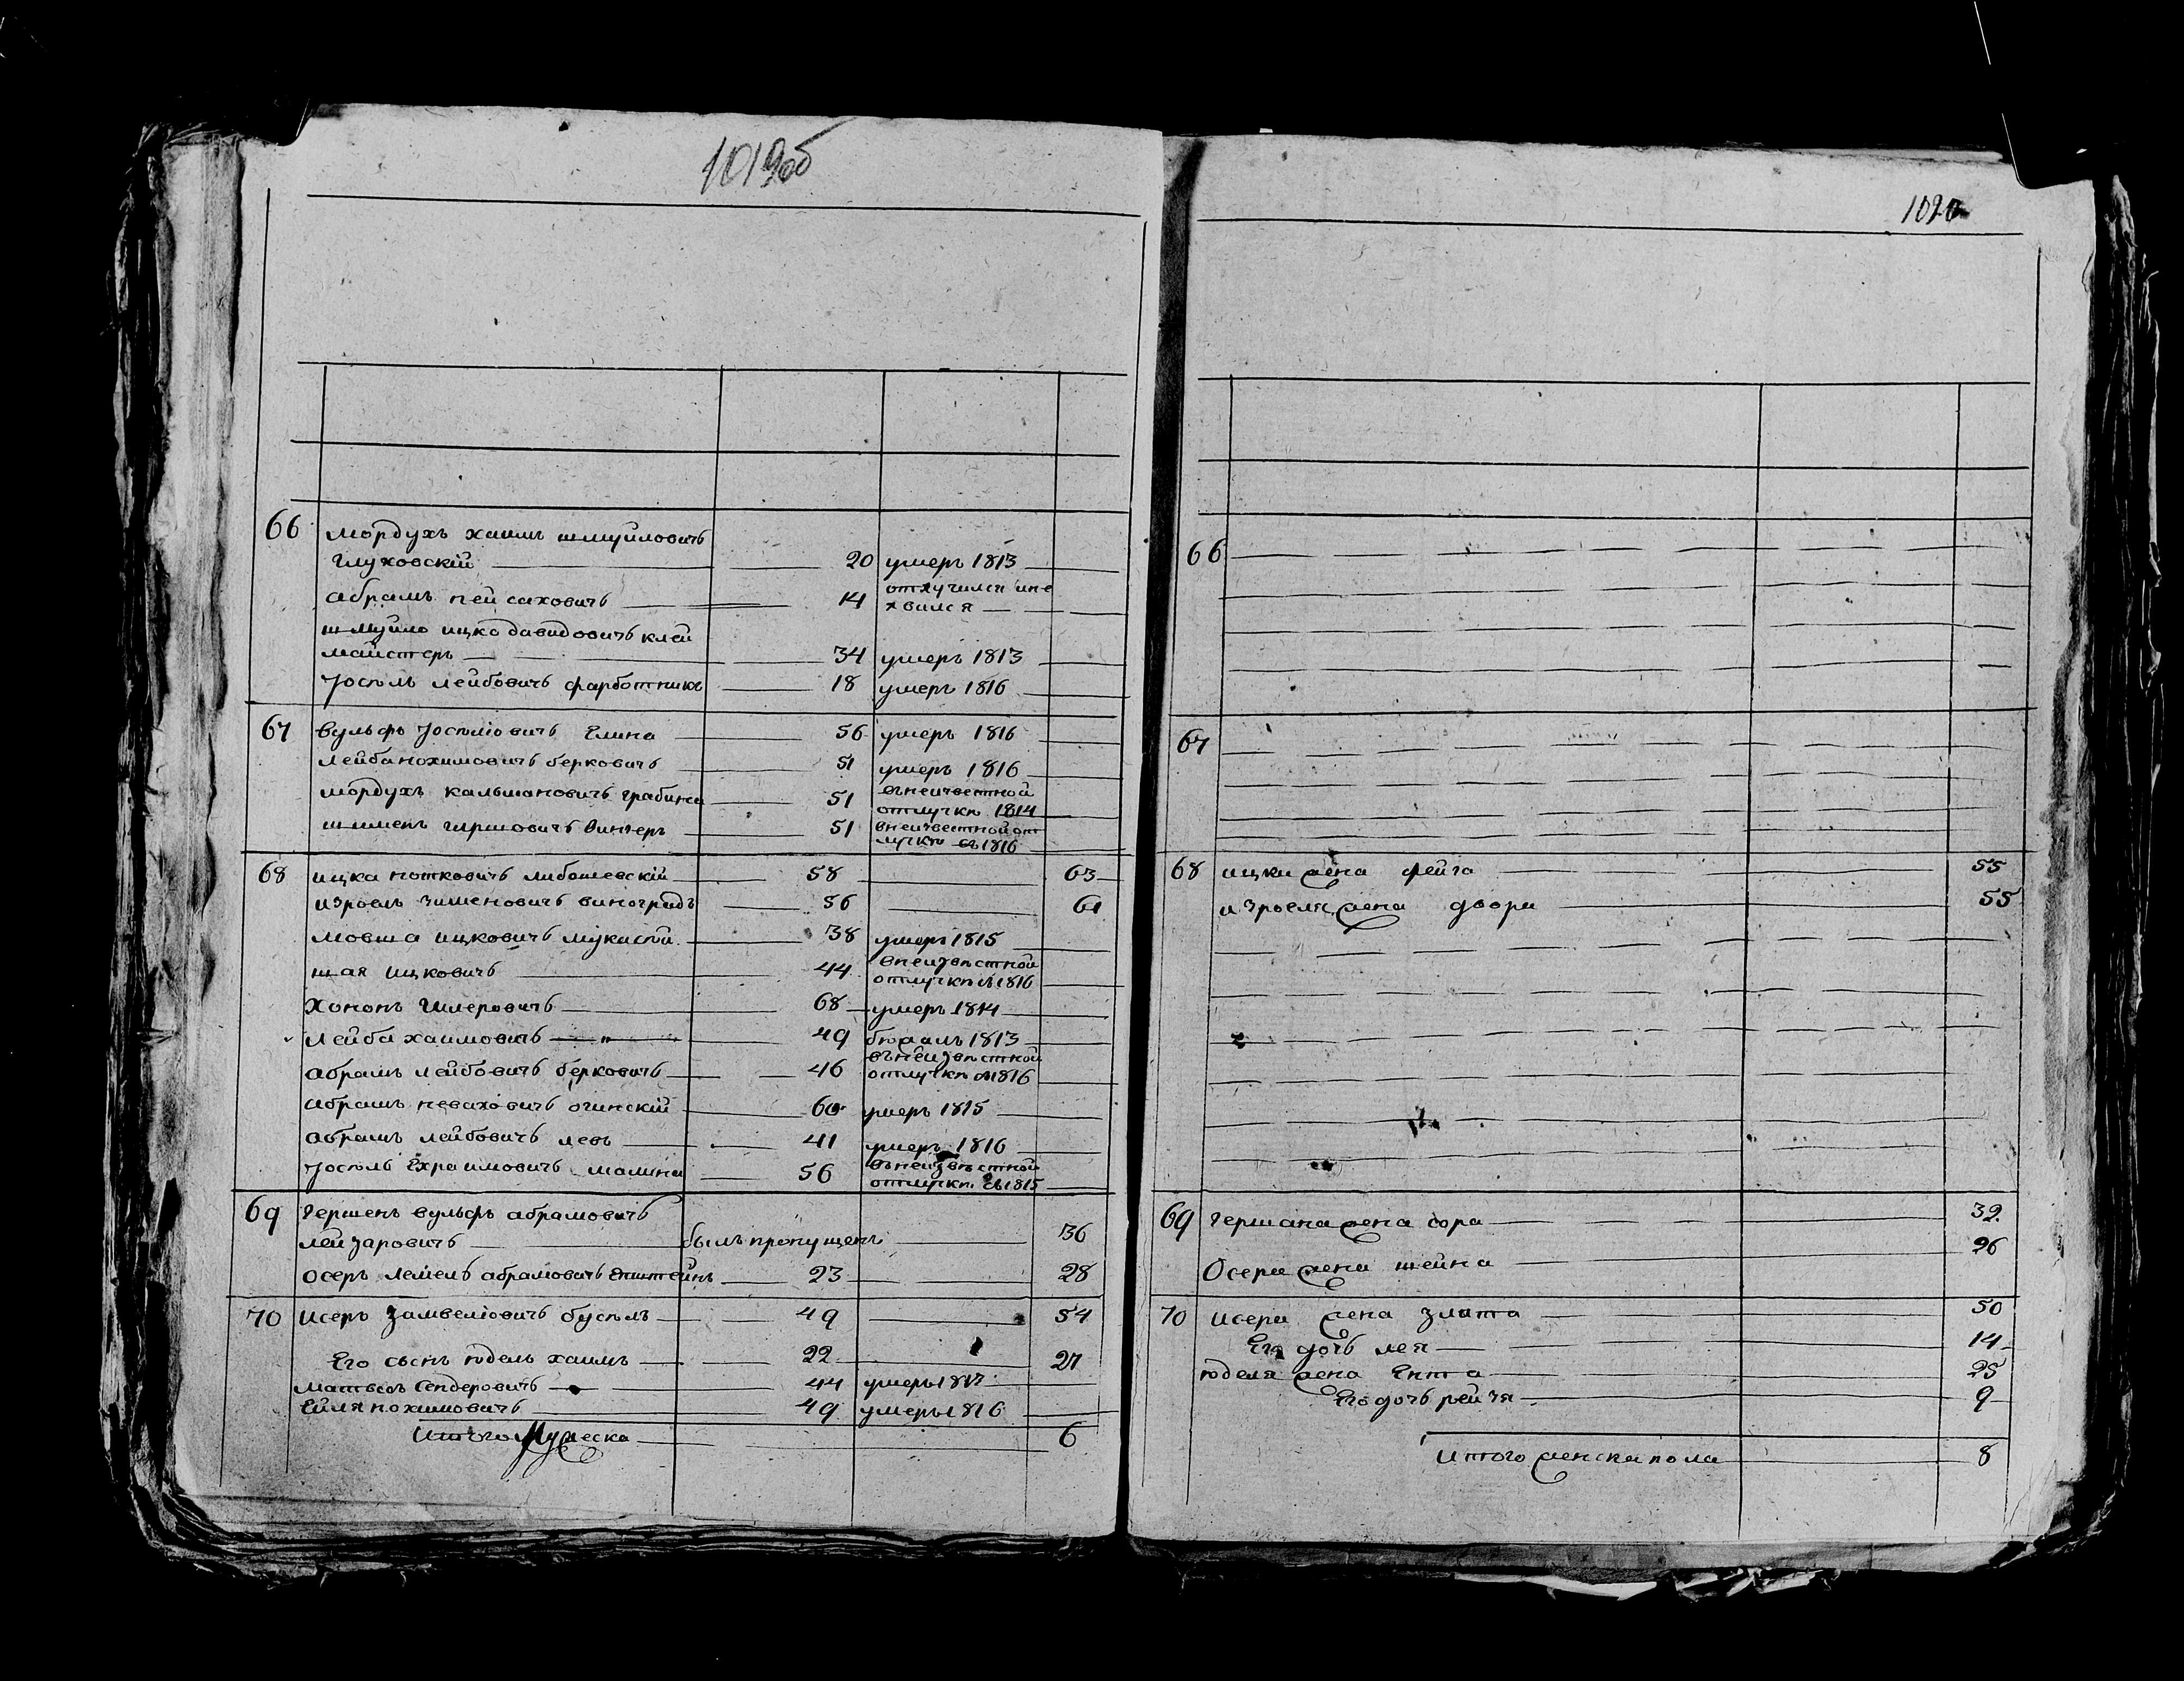 1019об
66 мордухъ хаимъ шмуйловичь
глуховскій 20 умеръ 1813
абрамъ пейсаховичь 14 отлучился и не
явился
шмуйло ицко давидовичь клей
майстеръ 34 умеръ 1813
Іосѣль лейбовичь фарботникъ 18 умеръ 1816
67 вульфъ Іосѣліовичь Елина 56 умеръ 1816
лейба нохимовичь берковичь 51 умеръ 1816
мордухъ кальмановичь грабина 51 въ неизвестной
отлучкѣ 1814
шименъ гиршовичь винчеръ 51 внеизвестной от
лучкѣ съ 1816
68 ицка нотковичь либошевскій 58 63
изроель зименовичь виноградъ 56 61
мовша ицковичь 38 умеръ 1815
шая ицковичь 44 внеизвѣстной
отлучкѣ съ 1816
Хононъ Шлеровичь 68 умеръ 1814
лейба хаимовичь " 49 бѣжалъ 1813
абрамъ лейбовичь берковичь 46 въ неизвѣстной
отлучкѣ съ 1816
абрамъ неваховичь огинскій 60 умеръ 1815
абрамъ лейбовичь левъ 41 умеръ 1816
Іосѣль Ехраимовичь малина 56 въ неизвѣстной
отлучкѣ съ 1815
69 гершенъ вульфъ абрамовичь
лейзаровичь былъ пропущенъ 36
осеръ лемель абрамовичь епштейнъ 23 28
70 исеръ замвеліовичь бусѣль 49 54
Его сынъ юдель хаимъ 22 27
матвесъ Сендеровичь 44 умеръ
Ейля нохимовичь 49 умеръ 1816
Итого Мужеска 6
1020
66
67
68 ицки жена фейга 55
изроеля жена двора 55
69 гершана жена сора 32
Осера жена шейна 26
70 исера жена злата 50
Его дочь лея 14
юделя жена Ента 25
Его дочь рейзя 9
Итого женска пола 8